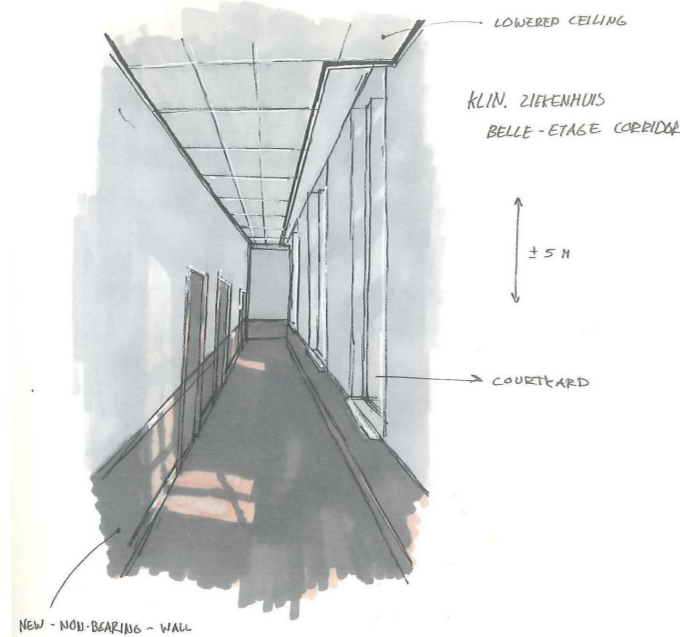 LOWERED CEILING
KLIN. ZIEKENHUIS
BELLE-ETAGE CORRIDOR
± 5 M
COURTYARD
NEW-NON-BEARING-WALL